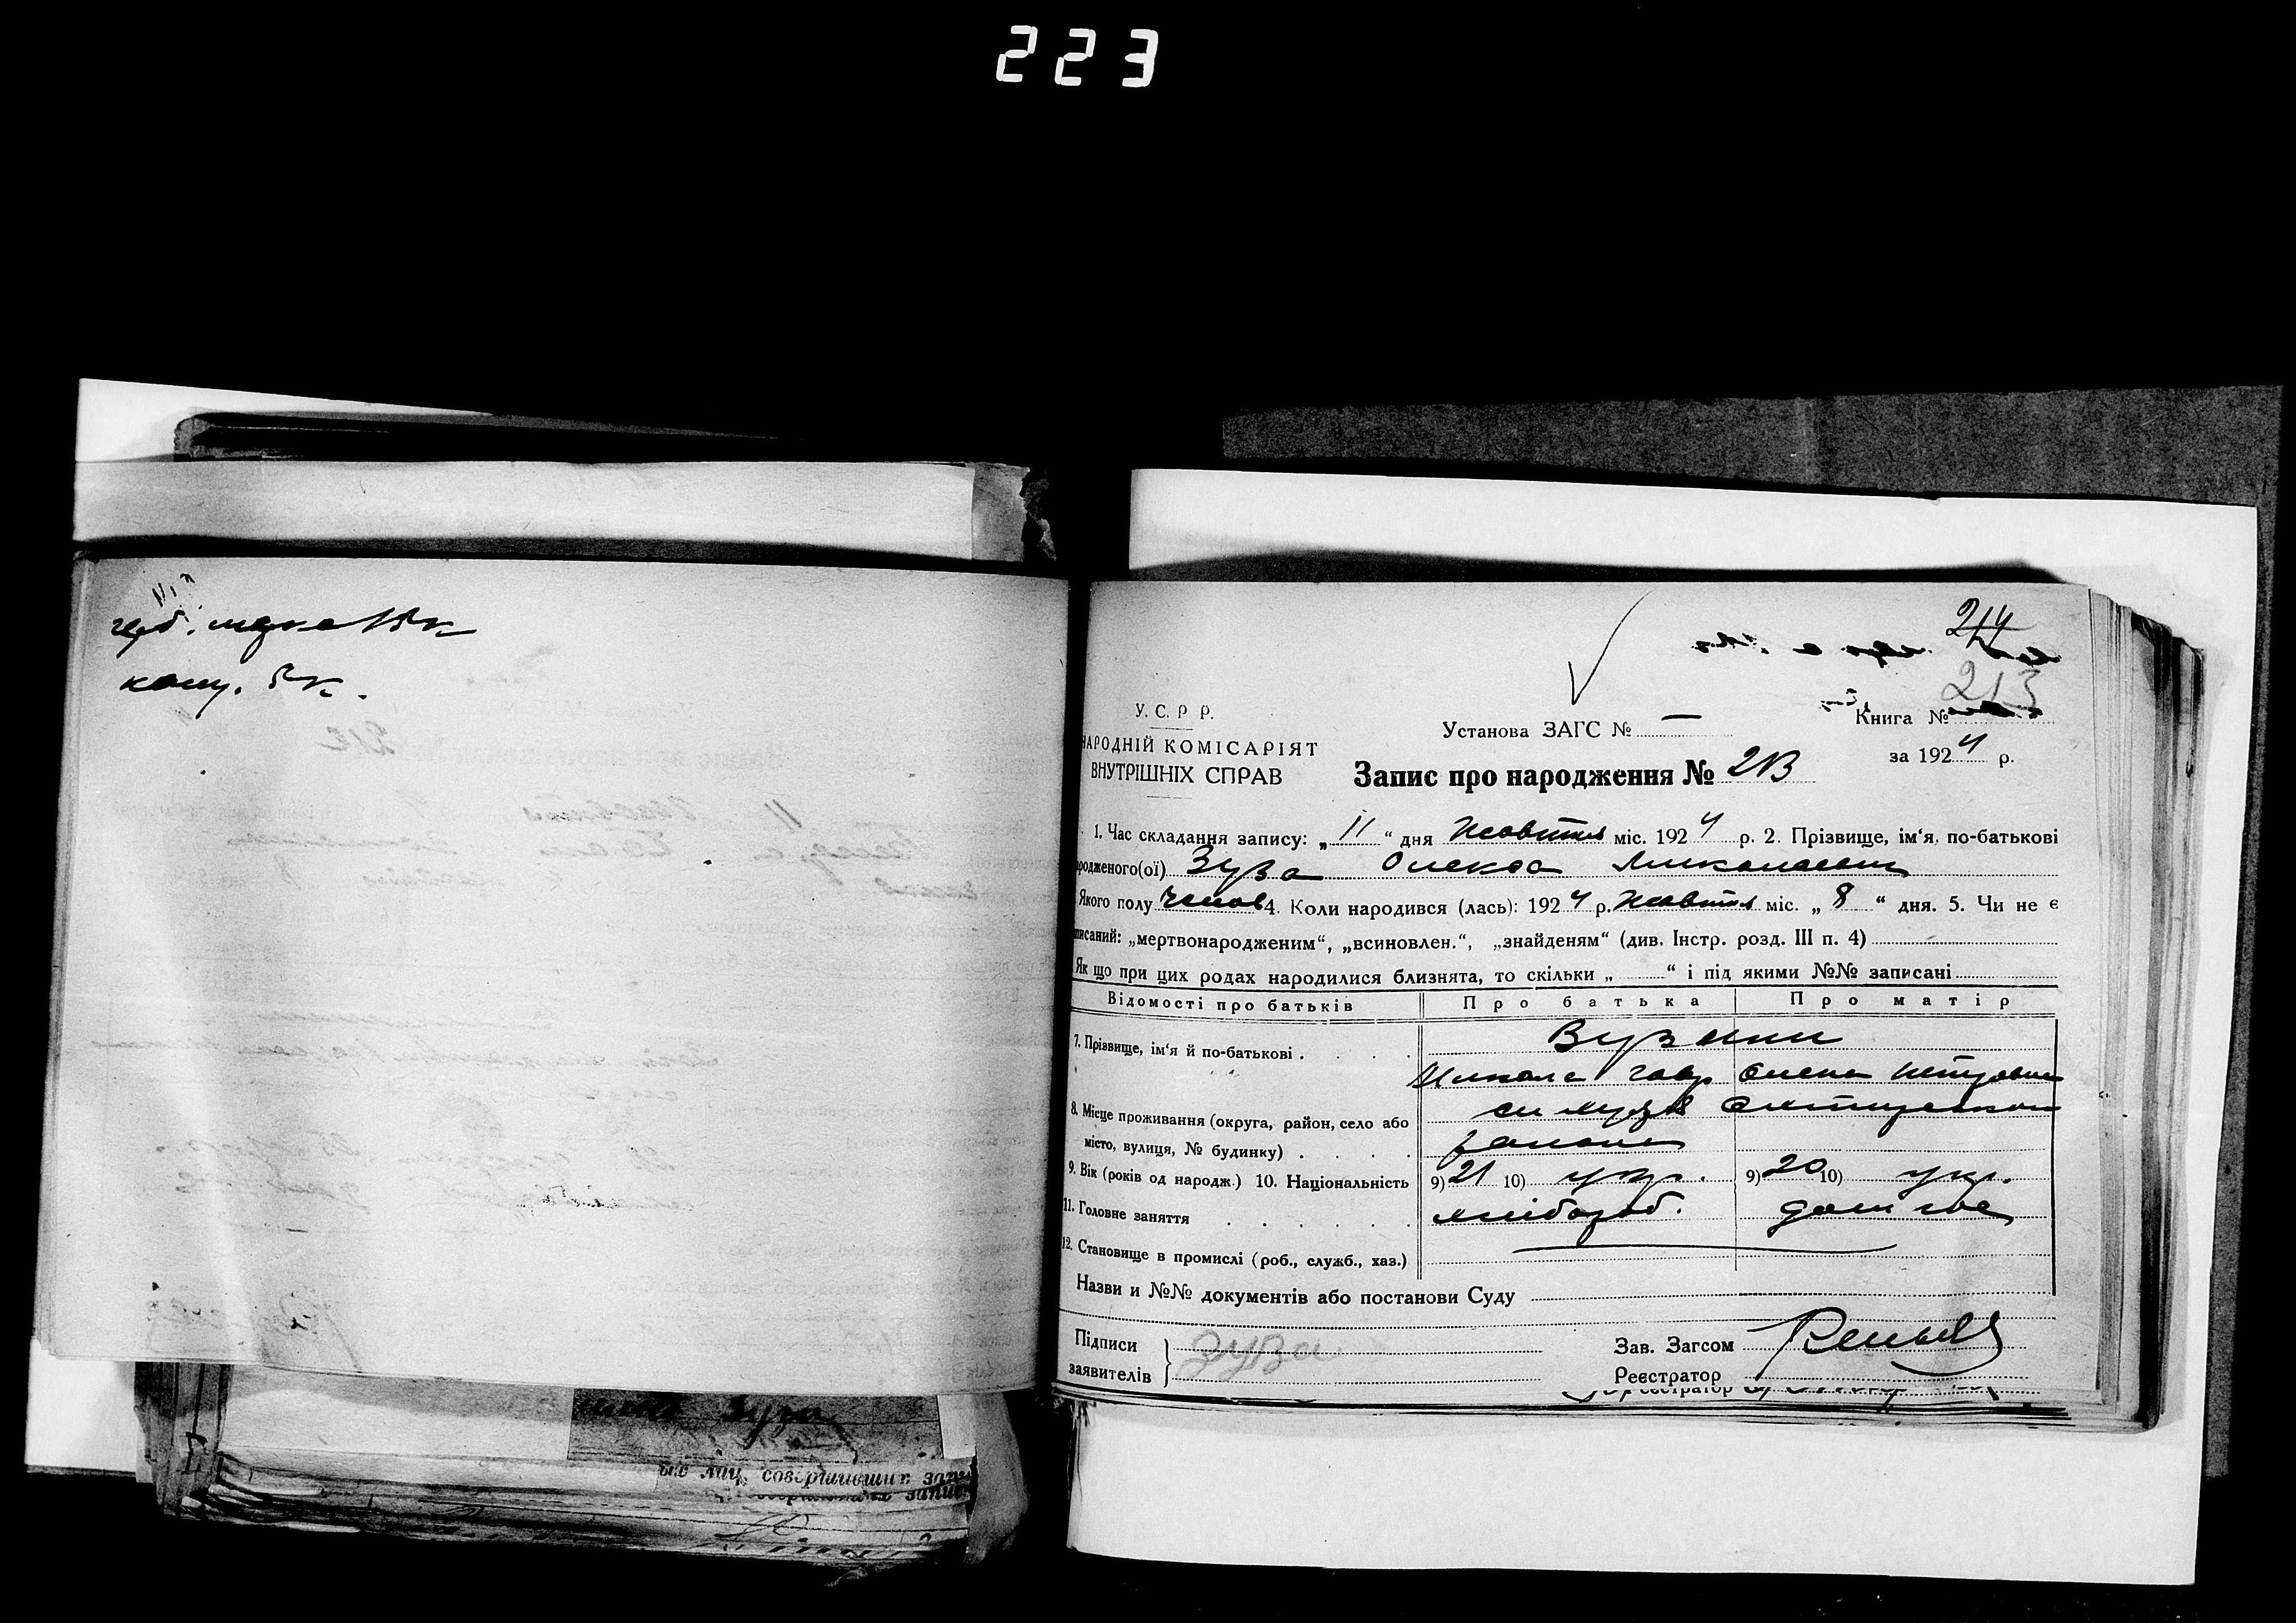 223
герб. марка 15 к
канц. 5 к.
214
213
У. С. Р Р.
НАРОДНІЙ КОМІСАРІЯТ
ВНУТРІШНІХ СПРАВ
Установа ЗАГС № —
Книга №
за 1924 р.
Запис про народження № 213
1. Час складання запису: „ 11 “ дня Жовтня міс. 1924 р. 2. Прізвище, ім‘я, по-батькові
родженого(ої) Зуза Олекса Миколаевич
Якого полу 4. Коли народився (лась): 1924 р. Жовтня міс. „ 8 “ дня. 5. Чи не є
писаний: „мертвонародженим“, „всиновлен.“, „знайденям“ (див. Інстр. розд. III п. 4)
Як що при цих родах народилися близнята, то скільки „ “ і під якими №№ записані
Відомості про батьків Про батька Про матір
7. Прізвище, ім‘я й по-батькові .
Микола Гавр Олена Петровна
8. Місце проживання (округа, район, село або
місто, вулиця, № будинку) . району
9. Вік (років од народж.) 10. Національність 9) 21 10) укр. 9) 20 10) укр.
11. Головне заняття хлібороб. дом гос
12. Становище в промислі (роб., служб., хаз.)
Назви и №№ документів або постанови Суду
Підписи
заявителів
Зуза
Зав. Загсом
Реєстратор
Реєстратор
Зуза
лиц, совершивших запи